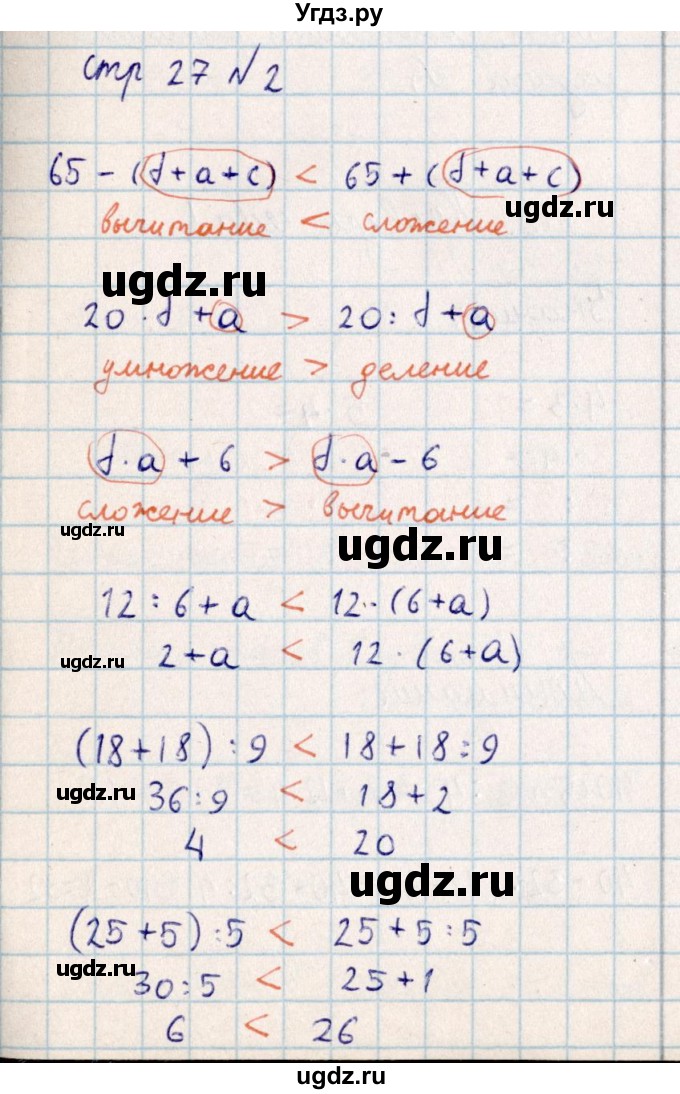 Угдз.ру
стр 27 №2
65 - (d + a + c) < 65 + (d + a + c)
ugdz.ru
вычитание < сложение
ugdz.ru
20 · d + a > 20 : d + a
умножение > деление
d · a + 6 > d · a - 6
сложение > вычитание
ugdz.ru
ugdz.ru
12 : 6 + a < 12 · (6 + a)
2 + a < 12 · (6 + a)
ugdz.ru
(18 + 18) : 9 < 18 + 18 : 9
36 : 9 < 18 + 2
ugdz.ru
4 < 20
ugdz.ru
(25 + 5) : 5 < 25 + 5 : 5
ugdz.ru
30 : 5 < 25 + 1
6 < 26
ugdz.ru